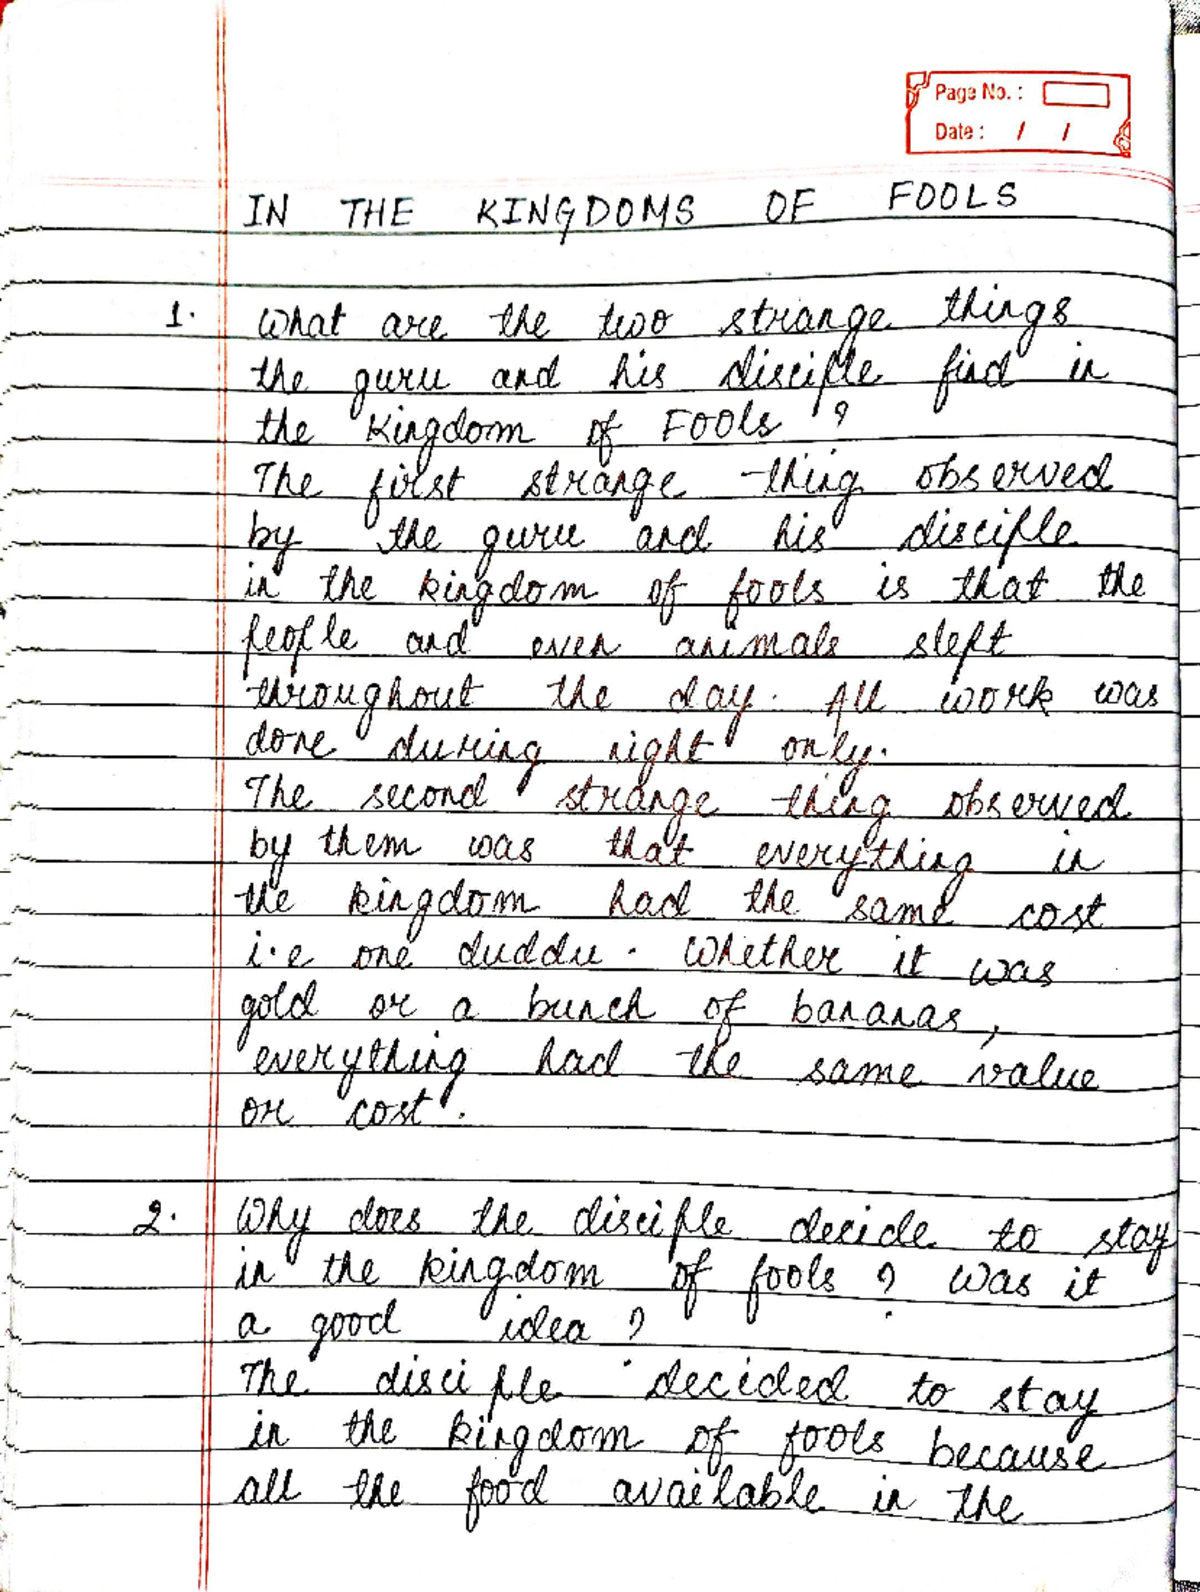 Page No. :
Date : / /
IN THE KINGDOMS OF FOOLS
1. What are the two strange things
the guru and his disciple find in
the Kingdom of Fools ?
The first strange thing observed
by the guru and his disciple
in the kingdom of fools is that the
people and even animals slept
throughout the day. All work was
done during night only.
The second strange thing observed
by them was that everything in
the kingdom had the same cost
i.e one duddu. Whether it was
gold or a bunch of bananas,
everything had the same value
or cost.
2. Why does the disciple decide to stay
in the kingdom of fools ? Was it
a good idea ?
The disciple decided to stay
in the kingdom of fools because
all the food available in the